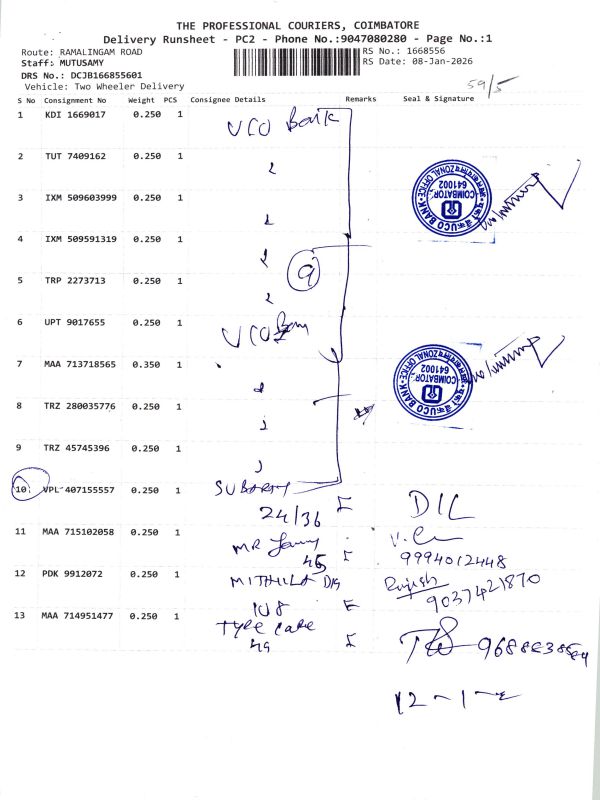 THE PROFESSIONAL COURIERS, COIMBATORE
Delivery Runsheet - PC2 - Phone No.:9047080280 - Page No.:1
Route: RAMALINGAM ROAD
RS No.: 1668556
Staff: MUTUSAMY
RS Date: 08-Jan-2026
DRS No.: DCJB166855601
Vehicle: Two Wheeler Delivery
59/5
S No Consignment No Weight PCS Consignee Details Remarks Seal & Signature
1 KDI 1669017 0.250 1 UCO Bank
2 TUT 7409162 0.250 1
3 IXM 509603999 0.250 1
4 IXM 509591319 0.250 1
9
5 TRP 2273713 0.250 1
6 UPT 9017655 0.250 1 UCO
7 MAA 713718565 0.350 1
8 TRZ 280035776 0.250 1
9 TRZ 45745396 0.250 1
10 VPL 407155557 0.250 1
24/36
11 MAA 715102058 0.250 1 MR
45
9994012448
12 PDK 9912072 0.250 1 MITHULA
Rajesh
108
9037421870
13 MAA 714951477 0.250 1 Tyre care
49
UCO BANK
ZONAL OFFICE
COIMBATORE
641002
UCO BANK
ZONAL OFFICE
COIMBATORE
641002